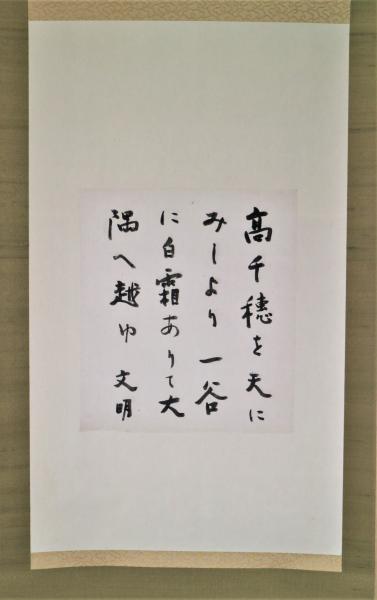 高千穂を天に
みしより一谷
に白霜ありて大
隅へ越ゆ 文明